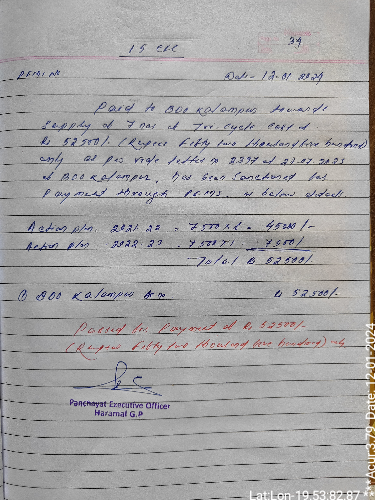 39
15 CFC
Date - 12-01-2024
Paid to BDO Kalampur towards
Supply of 7 nos of Tri cycle cost of
Rs 52500/- (Rupees Fifty two thousand five hundred)
only as per vide letter no 2237 dt 27.07.2023
of BDO Kalampur, has been sanctioned for
Payment through PFMS. as below details.
Action plan 2021-22 - 7500x6 = 45000/-
Action plan 2022-23 - 7500x1 - 7500/-
Total Rs 52500/-
① BDO Kalampur Rs 52500/-
Passed for Payment of Rs 52500/-
(Rupees Fifty two thousand five hundred) only
Panchayat Executive Officer
Haramal G.P
Lat:Lon-19.53,82.87
**Acur:3.79, Date: 12-01-2024